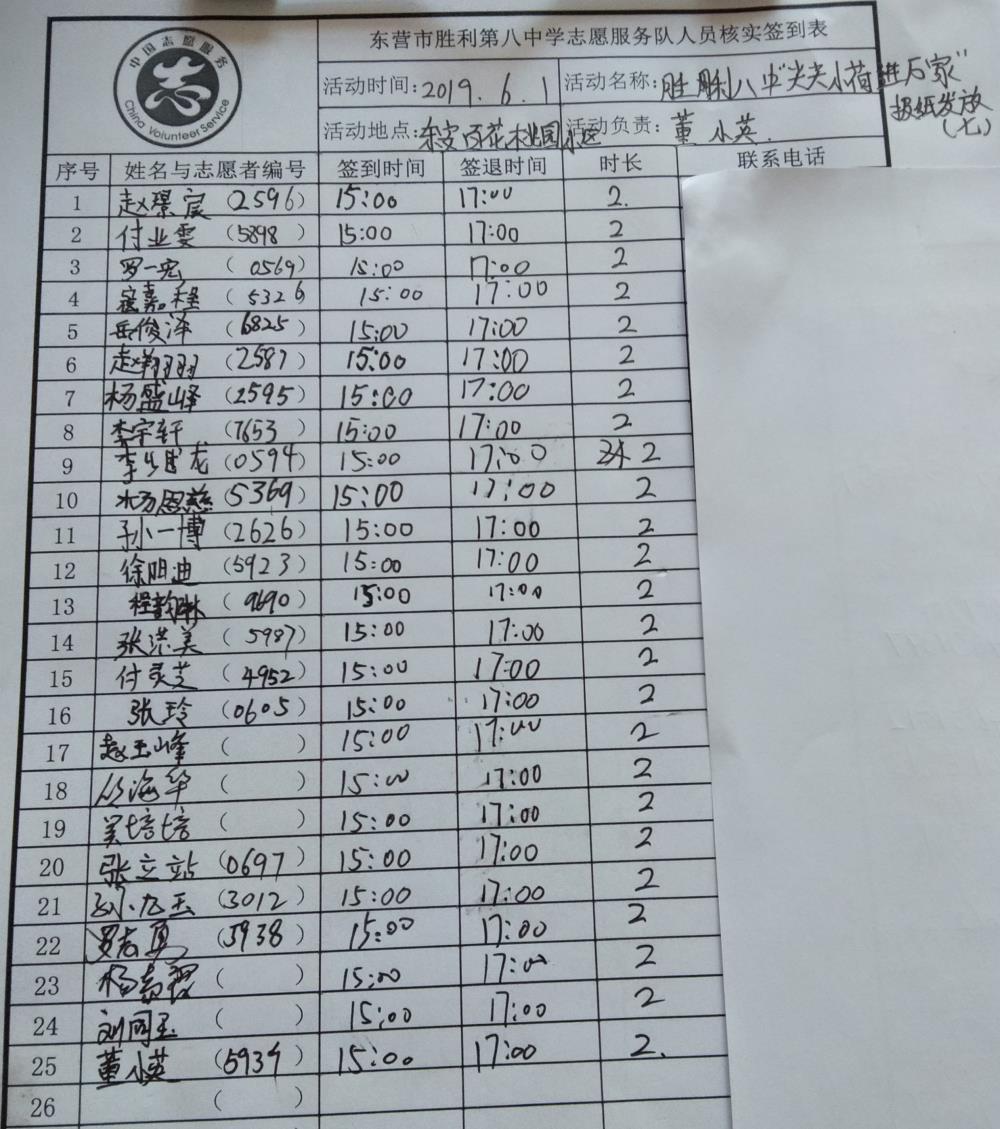 中国志愿服务
China Volunteer Service
东营市胜利第八中学志愿服务队人员核实签到表
活动时间:2019.6.1 活动名称:胜利八中"尖尖小荷进万家"
报纸发放
(七)
活动地点:东安百花桃园小区 活动负责:董小英.
序号 姓名与志愿者编号 签到时间 签退时间 时长 联系电话
1 赵璟宸 (2596) 15:00 17:00 2.
2 付业雯 (5898) 15:00 17:00 2
3 罗一宏 (0569) 15:00 17:00 2
4 寇嘉程 (5326) 15:00 17:00 2
5 岳俊泽 (6825) 15:00 17:00 2
6 赵翔羽 (2587) 15:00 17:00 2
7 杨盛峰 (2595) 15:00 17:00 2
8 李宇轩 (7653) 15:00 17:00 2
9 李 龙 (0594) 15:00 17:00 2
10 杨恩慈 (5369) 15:00 17:00 2
11 孙一博 (2626) 15:00 17:00 2
12 徐明迪 (5923) 15:00 17:00 2
13 程韵琳 (9690) 15:00 17:00 2
14 张洪美 (5987) 15:00 17:00 2
15 付灵芝 (4952) 15:00 17:00 2
16 张玲 (0605) 15:00 17:00 2
17 赵玉峰 ( ) 15:00 17:00 2
18 丛海华 ( ) 15:00 17:00 2
19 吴培培 ( ) 15:00 17:00 2
20 张立站 (0697) 15:00 17:00 2
21 孙九玉 (3012) 15:00 17:00 2
22 罗志勇 (5938) 15:00 17:00 2
23 杨 ( ) 15:00 17:00 2
24 刘同玉 ( ) 15:00 17:00 2
25 董小英 (5934) 15:00 17:00 2.
26 ( )